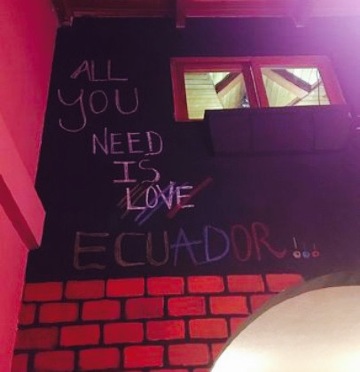 ALL
YOU
NEED
IS
LOVE
ECUADOR!...